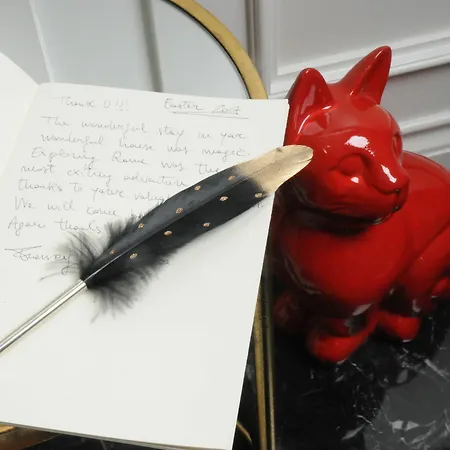 Thank U!!! Easter 2017
The wonderful stay in your
wonderful house was magic.
Exploring Rome was the
most exciting adventure
thanks to your
We will come
Again thanks